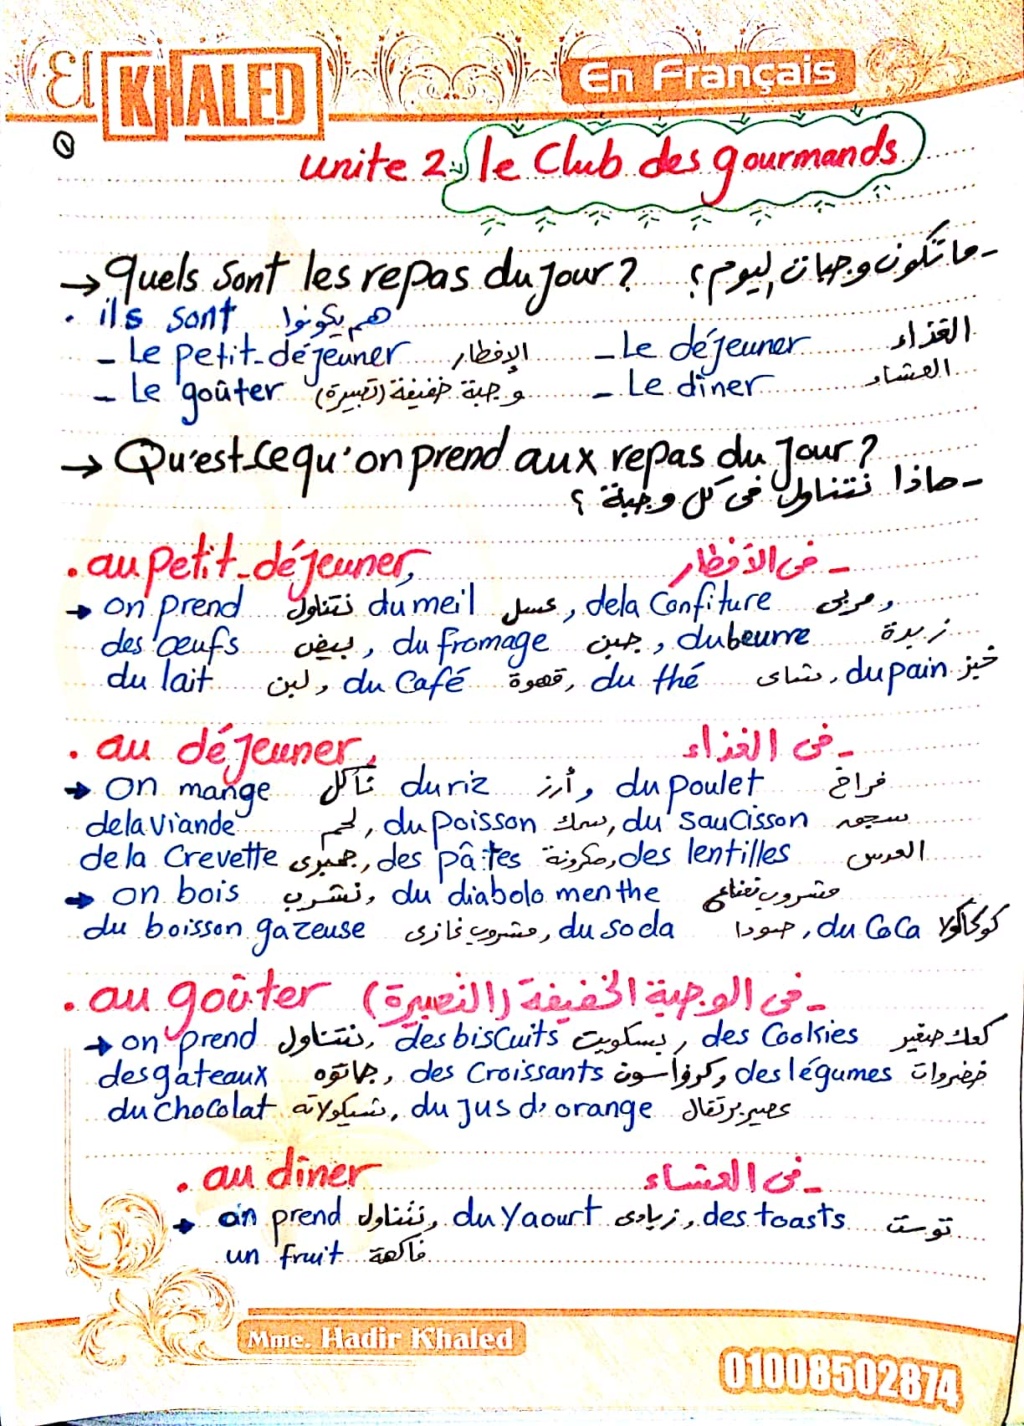 El KHALED
En Français
1
unite 2 le Club des gourmands
→ Quels sont les repas du Jour? - ما تكون وجبات اليوم؟
. ils sont هم يكونوا
- Le petit-déjeuner الإفطار - Le déjeuner الغذاء
- Le goûter وجبة خفيفة (تصبيرة) - Le dîner العشاء
→ Qu'est-ce qu'on prend aux repas du Jour?
- ماذا نتناول فى كل وجبة ؟
. au petit-déjeuner, - فى الأفطار
→ on prend نتناول du meil عسل, de la Confiture مربى,
des œufs بيض, du fromage جبن, du beurre زبدة
du lait لبن, du Café قهوة, du thé شاى, du pain خبز
. au déjeuner, - فى الغذاء
→ On mange نأكل du riz أرز, du poulet فراخ
de la viande لحم, du poisson سمك, du saucisson سجق
de la Crevette جمبرى, des pâtes مكرونة, des lentilles العدس
→ on bois نشرب, du diabolo menthe مشروب نعناع
du boisson gazeuse مشروب غازى, du soda صودا, du CoCa كوكاكولا
. au goûter - فى الوجبة الخفيفة (التصبيرة)
→ on prend نتناول, des biscuits بسكويت, des Cookies كعك صغير
des gateaux جاتوه, des Croissants كرواسون, des légumes خضروات
du chocolat شيكولاته, du jus d'orange عصير برتقال
. au dîner - فى العشاء
→ on prend نتناول, du Yaourt زبادى, des toasts توست
un fruit فاكهة
Mme. Hadir Khaled
01008502874